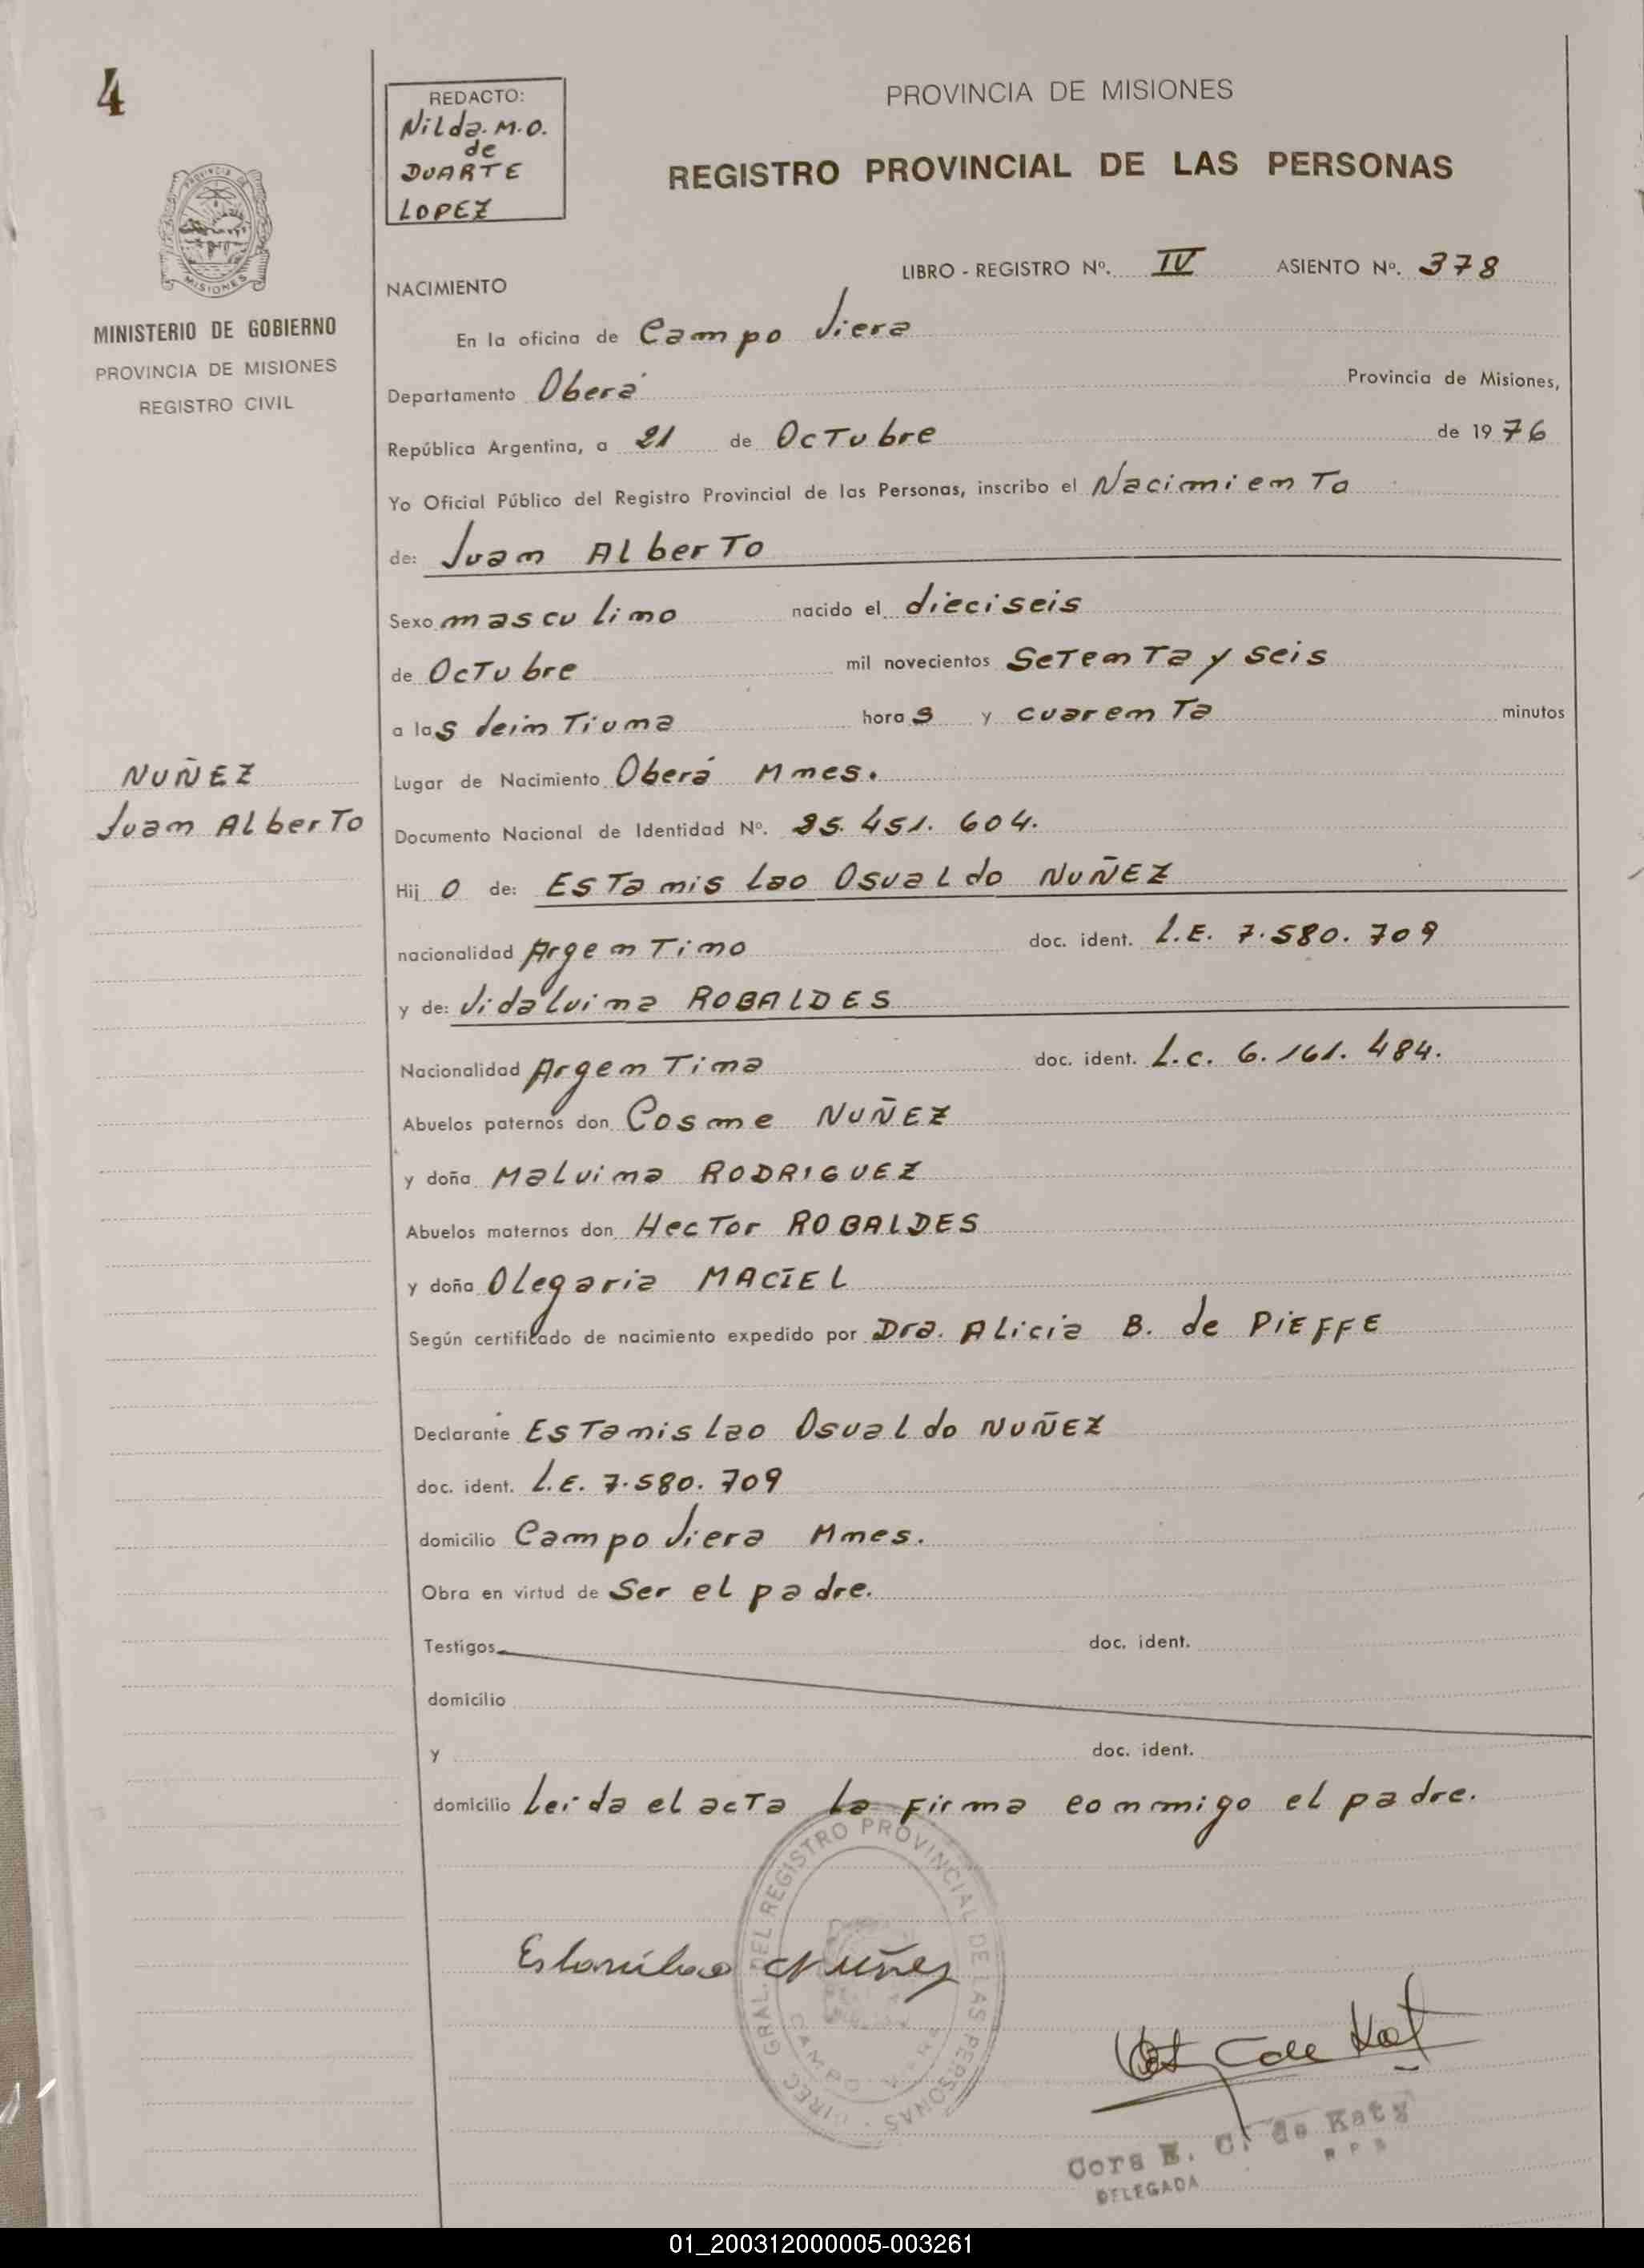 4
REDACTO:
Nilda. M.O.
de
DUARTE
LOPEZ
PROVINCIA DE MISIONES
REGISTRO PROVINCIAL DE LAS PERSONAS
MISIONES
MINISTERIO DE GOBIERNO
PROVINCIA DE MISIONES
REGISTRO CIVIL
LIBRO - REGISTRO Nº. IV ASIENTO Nº. 378
NACIMIENTO
En la oficina de Campo Viera
Departamento Oberá Provincia de Misiones,
República Argentina, a 21 de Octubre de 1976
Yo Oficial Público del Registro Provincial de las Personas, inscribo el Nacimiento
de: Juan Alberto
Sexo masculino nacido el dieciseis
de Octubre mil novecientos Setenta y seis
a las veintiuna horas y cuarenta minutos
NUÑEZ
Juan Alberto
Lugar de Nacimiento Oberá Mnes.
Documento Nacional de Identidad Nº. 25.451.604.
Hijo de: Estanislao Osvaldo NUÑEZ
nacionalidad Argentino doc. ident. L.E. 7.580.709
y de: Vidalvina ROBALDES
Nacionalidad Argentina doc. ident. L.c. 6.161.484.
Abuelos paternos don Cosme NUÑEZ
y doña Malvina RODRIGUEZ
Abuelos maternos don Hector ROBALDES
y doña Olegaria MACIEL
Según certificado de nacimiento expedido por Dra. Alicia B. de PIEFFE
Declarante Estanislao Osvaldo NUÑEZ
doc. ident. L.E. 7.580.709
domicilio Campo Viera Mnes.
Obra en virtud de Ser el padre.
Testigos doc. ident.
domicilio
y doc. ident.
domicilio Leida el acta la firma conmigo el padre.
DIREC. GRAL. DEL REGISTRO PROVINCIAL DE LAS PERSONAS
CAMPO VIERA
Estanislao Nuñez
Cora E. C. de Katz
DELEGADA
01_200312000005-003261